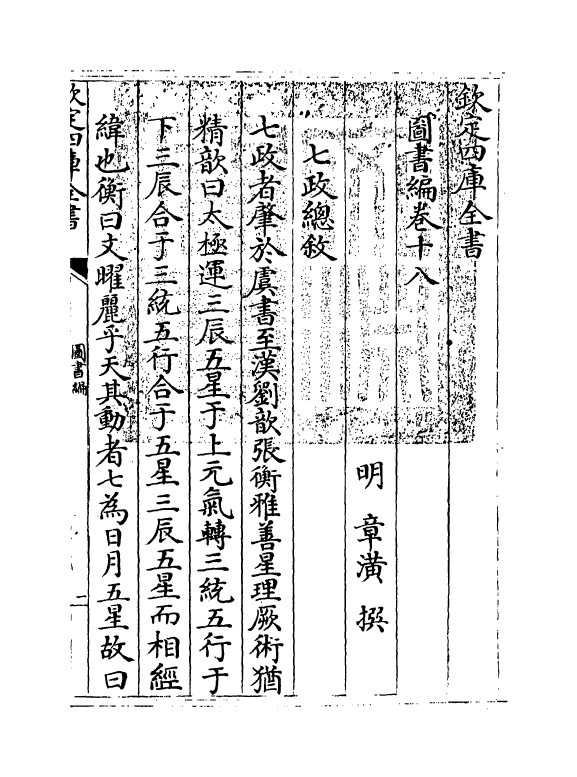 欽定四庫全書
圖書編卷十八
明 章潢 撰
七政總敘
七政者肇於虞書至漢劉歆張衡雅善星理厥術猶
精歆曰太極運三辰五星于上元氣轉三統五行于
下三辰合于三統五行合于五星三辰五星而相經
緯也衡曰文曜麗乎天其動者七為日月五星故曰
欽定四庫全書
圖書編